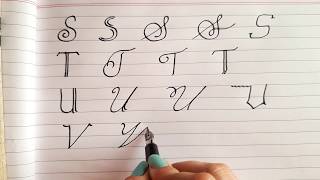 S S S S S
T T T T
U U U U
V V